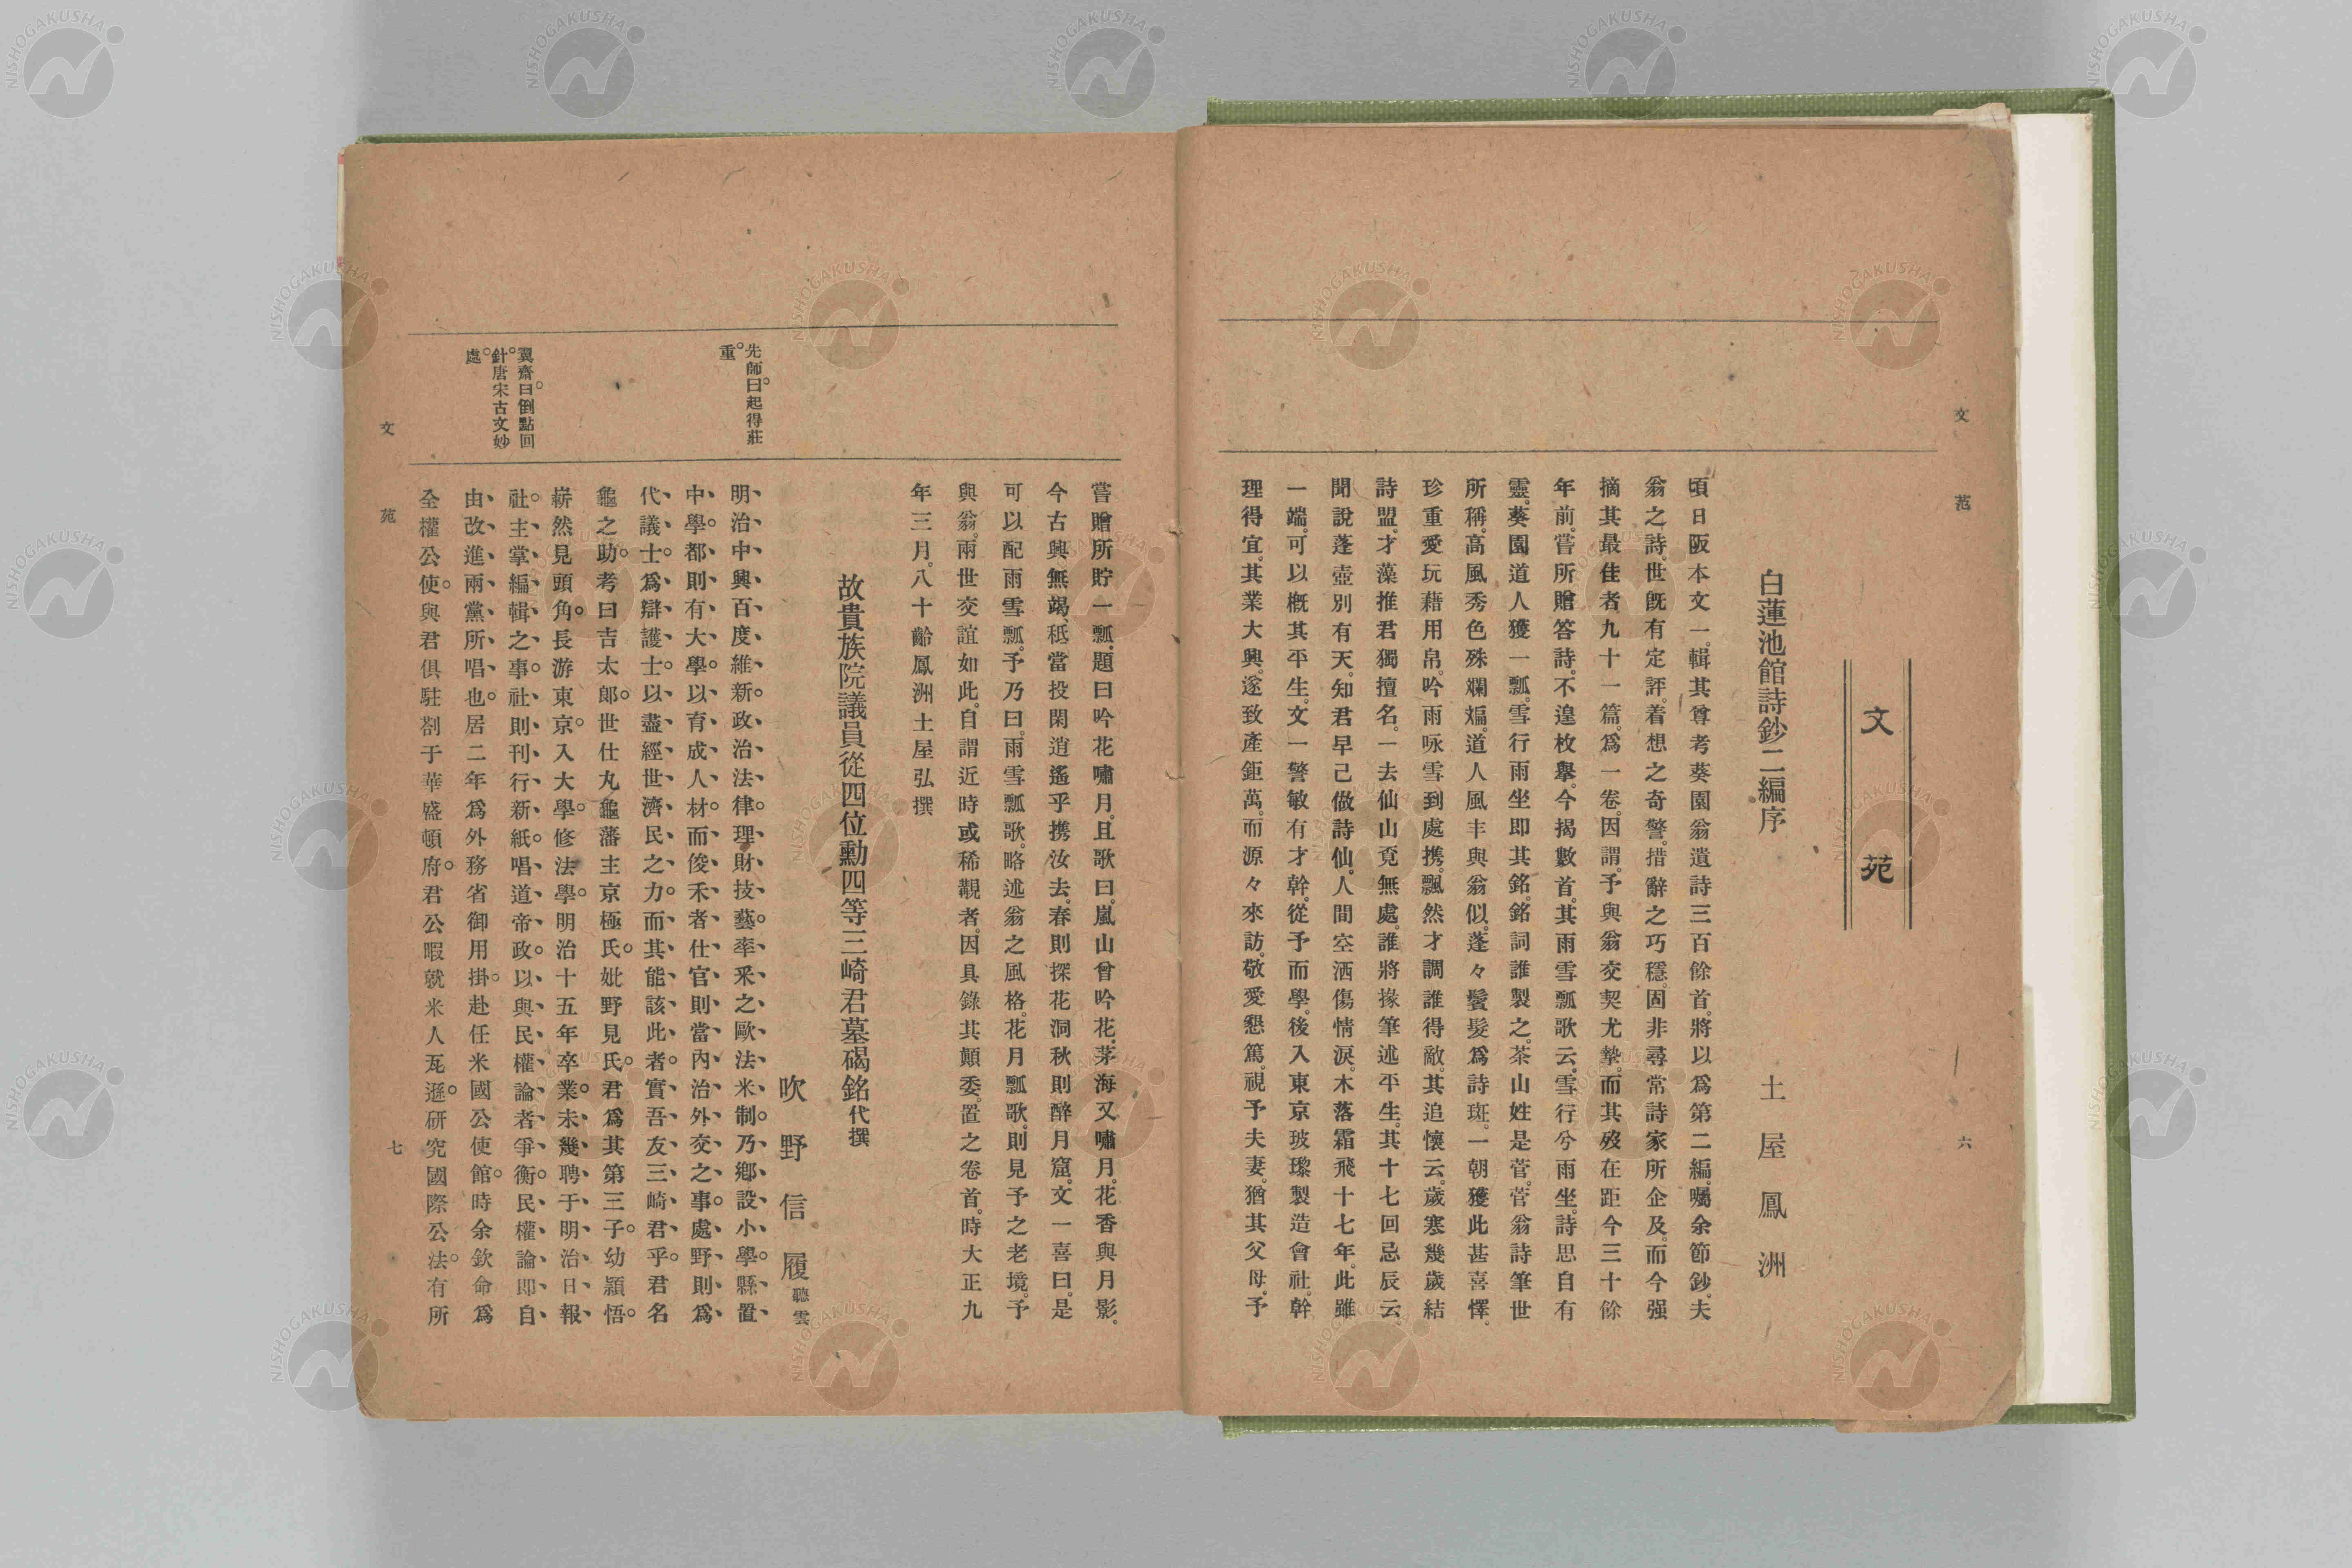 文苑
六
文苑
白蓮池館詩鈔二編序
土屋鳳洲
頃日阪本文一。輯其尊考葵園翁遺詩三百餘首。將以爲第二編。囑余節鈔。夫
翁之詩。世既有定評。着想之奇警。措辭之巧穩。固非尋常詩家所企及。而今强
摘其最佳者九十一篇。爲一卷。因謂。予與翁交契尤摯。而其歿在距今三十餘
年前。嘗所贈答詩。不遑枚擧。今揭數首。其雨雪瓢歌云。雪行兮雨坐。詩思自有
靈。葵園道人獲一瓢。雪行雨坐即其銘。銘詞誰製之。茶山姓是菅。菅翁詩筆世
所稱。高風秀色殊斕斒。道人風丰與翁似。蓬々鬢髮爲詩斑。一朝獲此甚喜懌。
珍重愛玩藉用帛。吟雨咏雪到處携。飄然才調誰得敵。其追懷云。歲寒幾歲結
詩盟。才藻推君獨擅名。一去仙山竟無處。誰將掾筆述平生。其十七回忌辰云。
聞說蓬壺別有天。知君早已做詩仙。人間空洒傷情淚。木落霜飛十七年。此雖
一端。可以槪其平生。文一警敏有才幹。從予而學。後入東京玻瓈製造會社。幹
理得宜。其業大興。遂致產鉅萬。而源々來訪。敬愛懇篤。視予夫妻。猶其父母。予
嘗贈所貯一瓢。題曰吟花嘯月。且歌曰。嵐山曾吟花。茅海又嘯月。花香與月影。
今古興無竭、秪當投閑逍遙乎携汝去。春則探花洞秋則醉月窟。文一喜曰。是
可以配雨雪瓢。予乃曰。雨雪瓢歌。略述翁之風格。花月瓢歌。則見予之老境。予
與翁。兩世交誼如此。自謂近時或稀覯者。因具錄其顚委。置之卷首。時大正九
年三月。八十齡鳳洲土屋弘撰
故貴族院議員從四位勳四等三崎君墓碣銘代撰
吹野信履聽雲
先師曰。起得莊
重。
明治中興百度維新。政治法律。理財技藝。率釆之歐法米制。乃鄕設小學。縣置
中學。都則有大學。以育成人材。而俊禾者仕官則當內治外交之事。處野則爲
代議士。爲辯護士。以盡經世濟民之力。而其能該此者。實吾友三崎君乎。君名
龜之助。考曰吉太郞。世仕丸龜藩主京極氏。妣野見氏。君爲其第三子。幼穎悟。
嶄然見頭角。長游東京。入大學。修法學。明治十五年卒業。未幾聘于明治日報
社。主掌編輯之事。社則刊行新紙。唱道帝政。以與民權論者爭衡。民權論即自
由改進兩黨所唱也。居二年爲外務省御用掛。赴任米國公使館。時余欽命爲
全權公使。與君俱駐剳于華盛頓府。君公暇就米人瓦遜。研究國際公法。有所
翼齋曰。倒點回
針。唐宋古文妙
處。
文苑
七